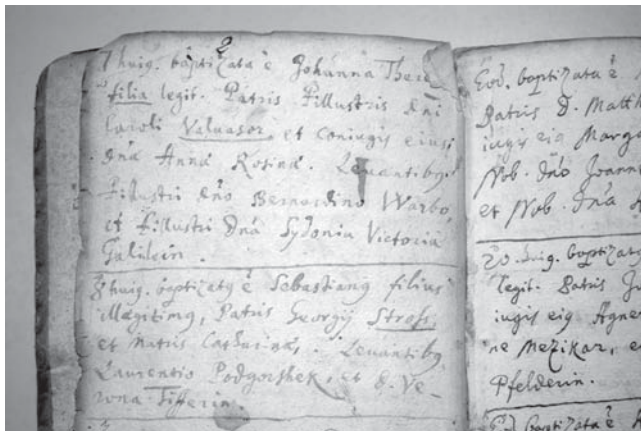 7 huig. baptizata ê Johanna There
filia legit. Patris Pillustris dni
Caroli Valuasor, et coniugis eius
dnâ Annâ Rosinâ. Levantibg
Pillustri dno Bernardino Warbo,
et Pillustri dnâ Sydonia Victoria
Gallilein.
8 huig. baptizatg ê Sebastiang filius
illegitimg, Patris Georgij Strofs,
et matris Catharinâ, . Levantibg
Laurentio Podgorshek, et d. Ve-
rona Tifferin.
Eod. baptizata ê
Patris D. Matth
iugis eig Marga
Nob. dno Joann
et Nob. dnâ
20. huig. baptizatg
legit. Patris Ju
iugis eig Agne
ne Mezikar, e
Pfelderin.
Eod baptizata ê